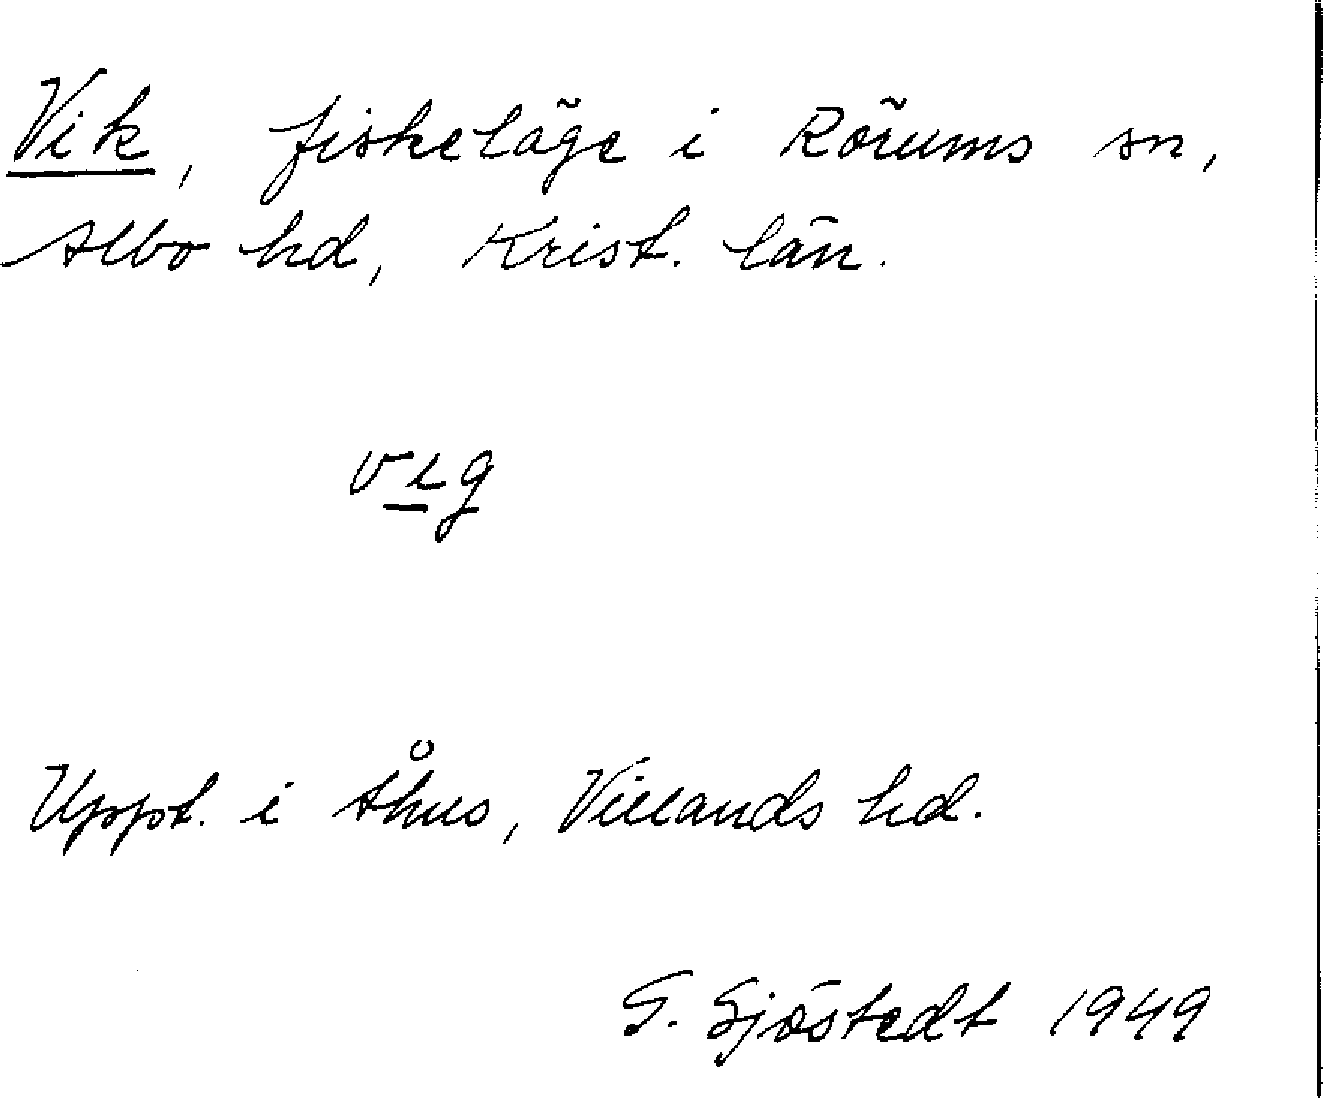 Vik, fiskeläge i Rörums sn,
Albo hd, Krist. län.
vıg
Uppt. i Åhus, Villands hd.
G. Sjöstedt 1949